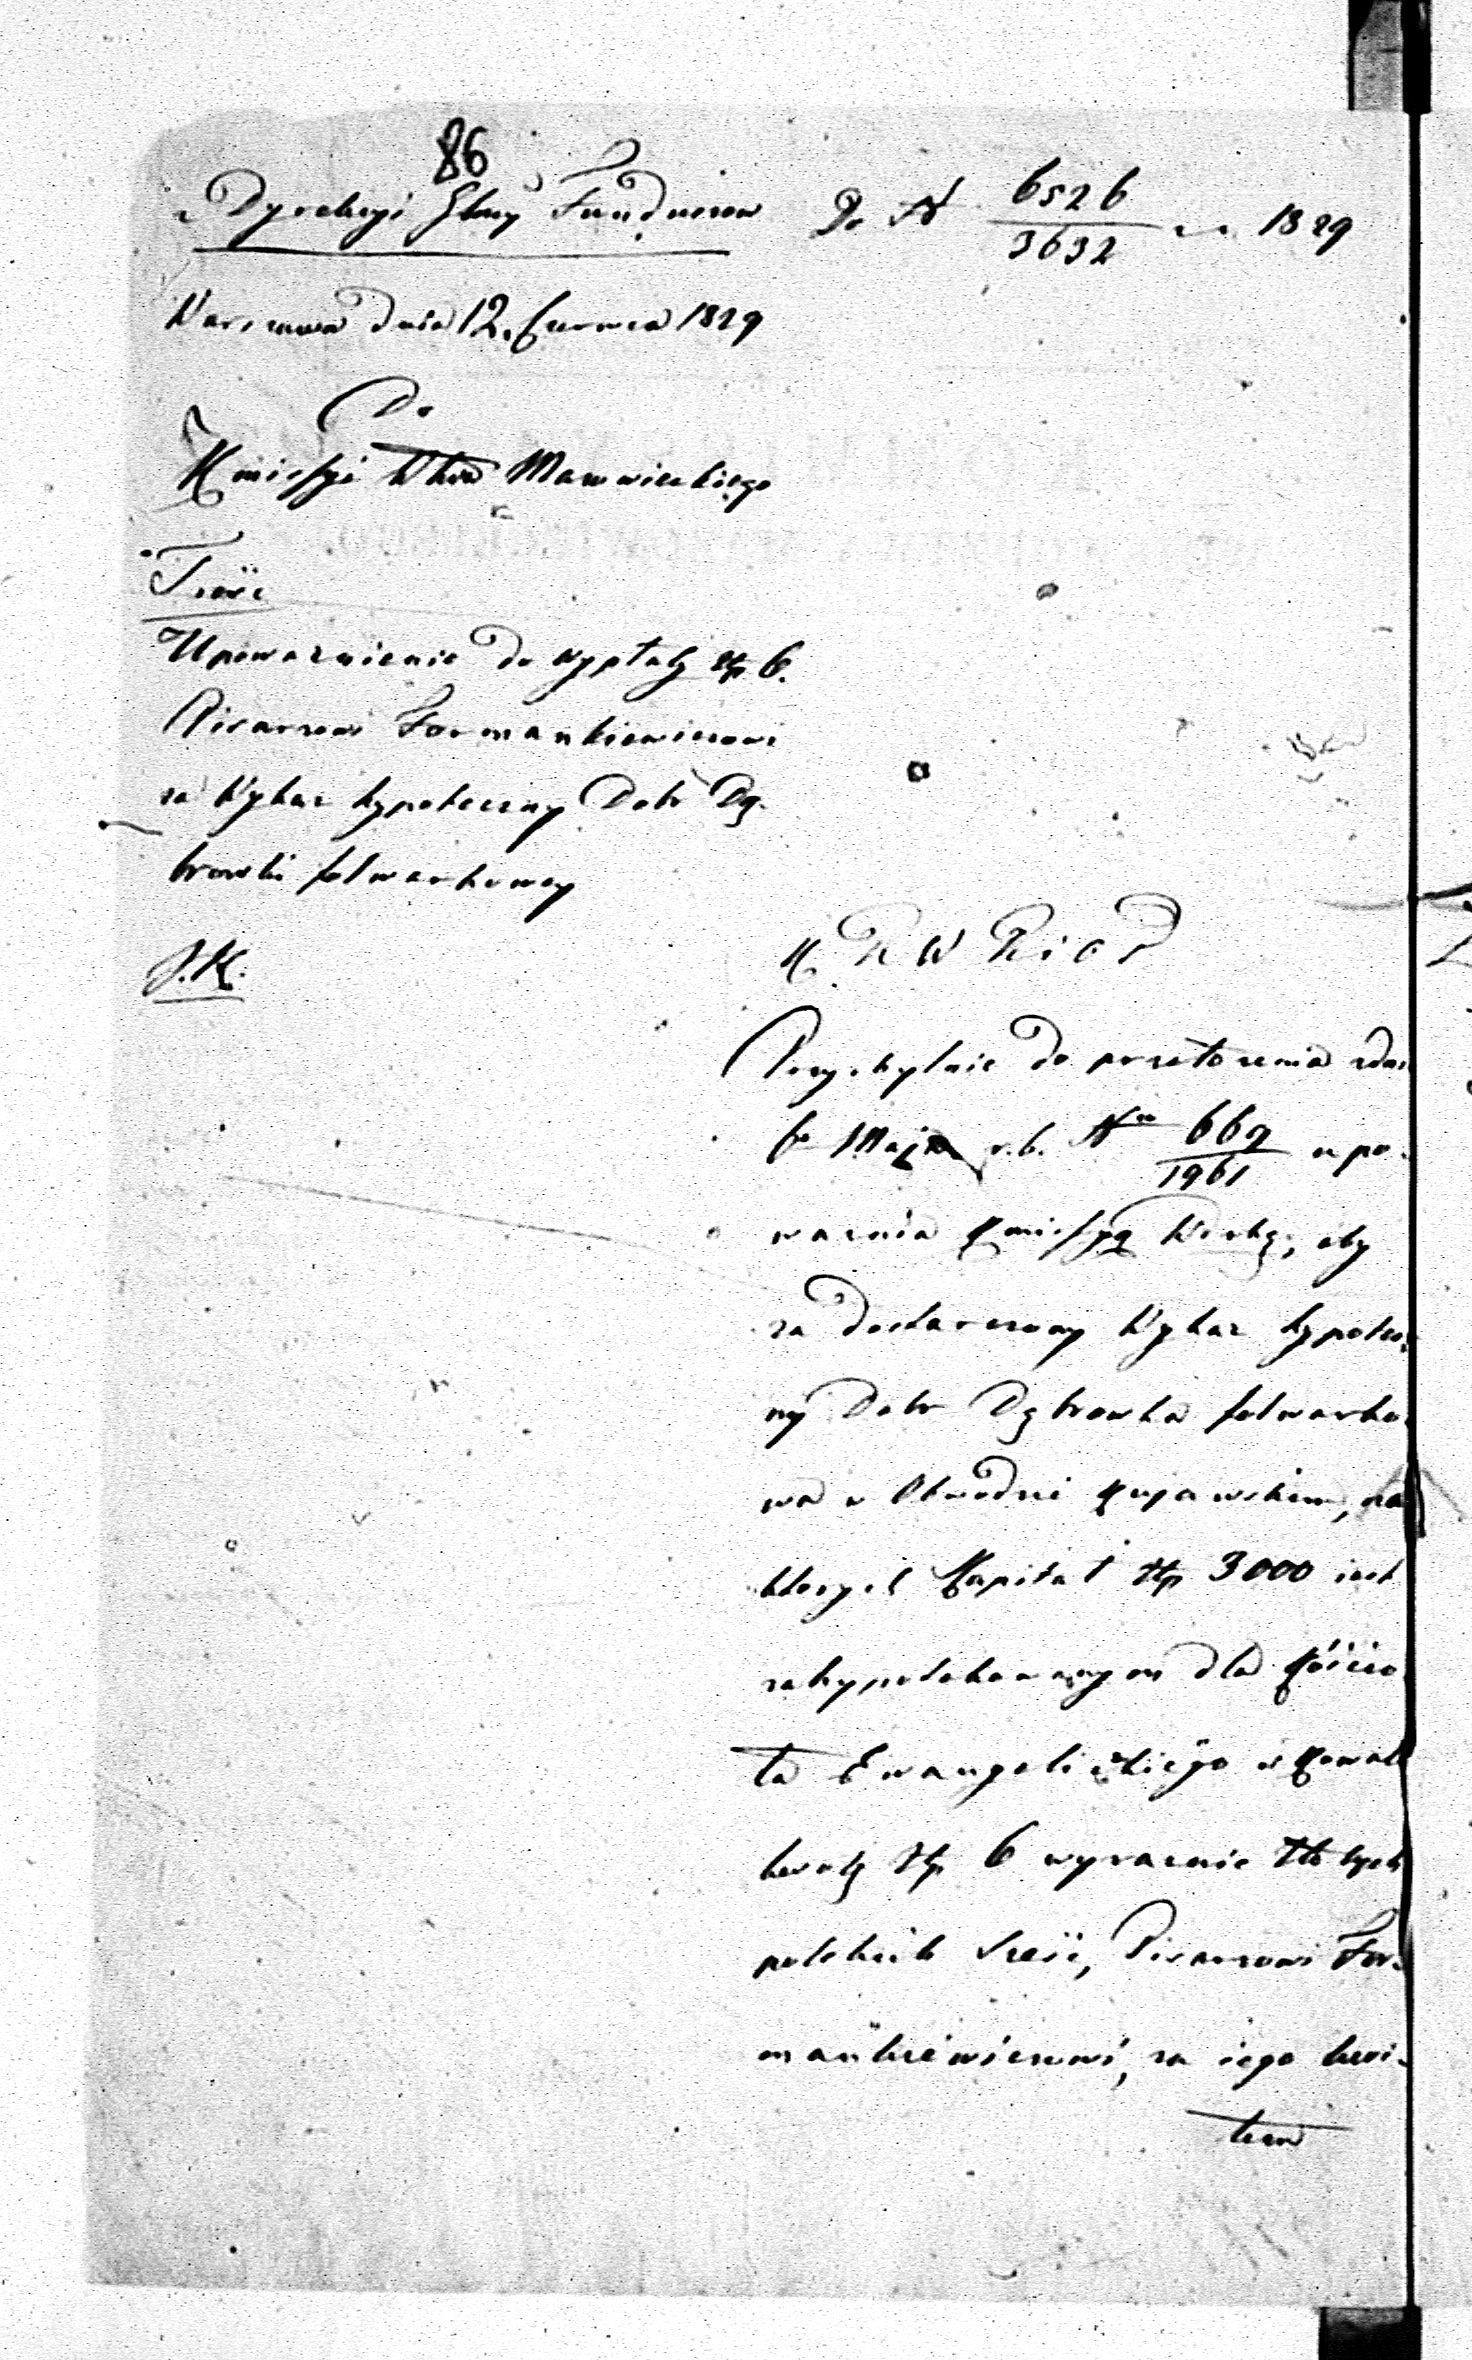 86
Dyrekcyi Głney Funduszow Do N 6526/3632 1829
Warszawa dnia 12. Czerwca 1829
Do
Kmissyi Wtwa Mazowieckiego
Treść
Upoważnienie do wypłaty złp 6.
Pisarzowi Formankiewiczowi
za Wykaz hypoteczny Dobr Dą-
browki folwarkowey
J.K.
K R W R i O P
Przychylnie do przełożenia zdn.
6° Maja r.b. N° 669/1961 upo-
ważnia Kmissyą Wdzką, aby
za dostarczony Wykaz hypotecz-
ny Dobr Dąbrowka folwarko-
wa w Obwodzie Kujawskim, na
ktorych Kapitał złp 3000 iest
zahypotekowanym dla Kościo-
ła Ewangelickiego w Kowalu
kwotę złp 6 wyraznie złłtych
polskich sześć, Pisarzowi For-
mankiewiczowi, za iego kwi-
tem